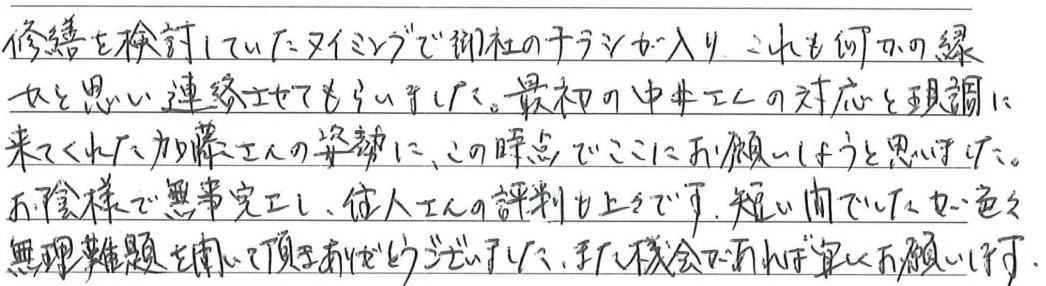 修繕を検討していたタイミングで御社のチラシが入り、これも何かの縁
かと思い連絡させてもらいました。最初の中井さんの対応と現調に
来てくれた加藤さんの姿勢に、この時点でここにお願いしようと思いました。
お陰様で無事完工し、住人さんの評判も上々です。短い間でしたが色々
無理難題を聞いて頂きありがとうございました、また機会であれば宜しくお願いします.